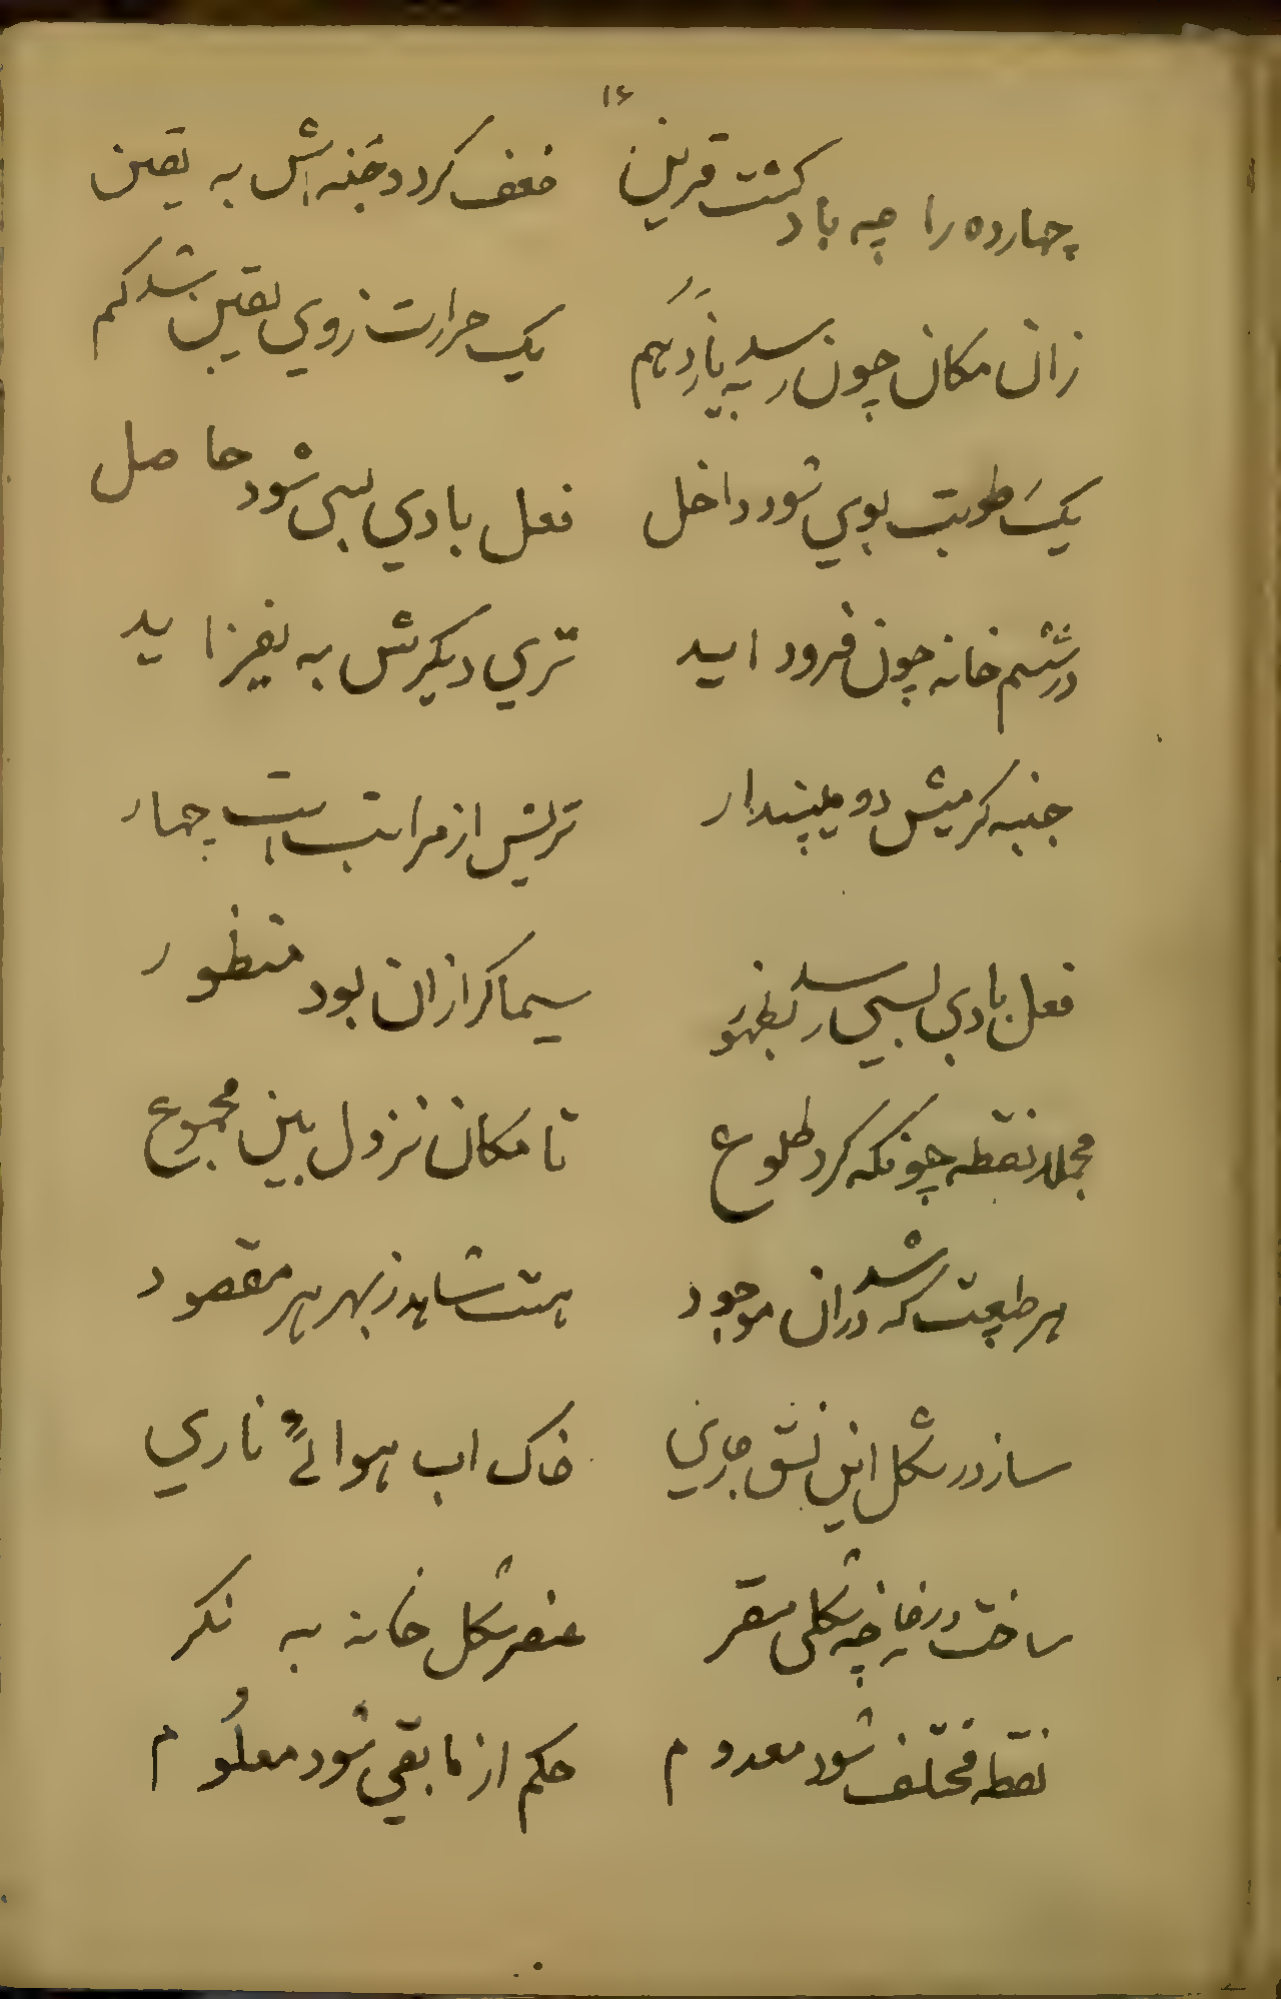 ۱۶
چهارده را چه باد کشت قرین ضعف کردد جنبه اش به یقین
زان مکان چون رسد به یازدهم یک حرارت زوي یقین شد کم
یک رطوبت بوي شود داخل فعل بادي بسی شود حاصل
در ششم خانه چون فرود اید تري دیکرش به بفزاید
جنبه کرمیش دو میپندار تریش از مراتب است چهار
فعل بادي بسی رسد بظهور سیما کر ازان بود منظور
مجملا نقطه چونکه کرد طلوع تا مکان نزول بین مجموع
هر طبیعت که شد دران موجود هست شاهد ز بهر هر مقصود
سازد در شکل این نسق جاري خاک اب هوائے ناري
ساخت در خانه چه شکلی مقر عنصر شکل خانه به نکر
نقطه مختلف شود معدوم حکم از مابقي شود معلوم